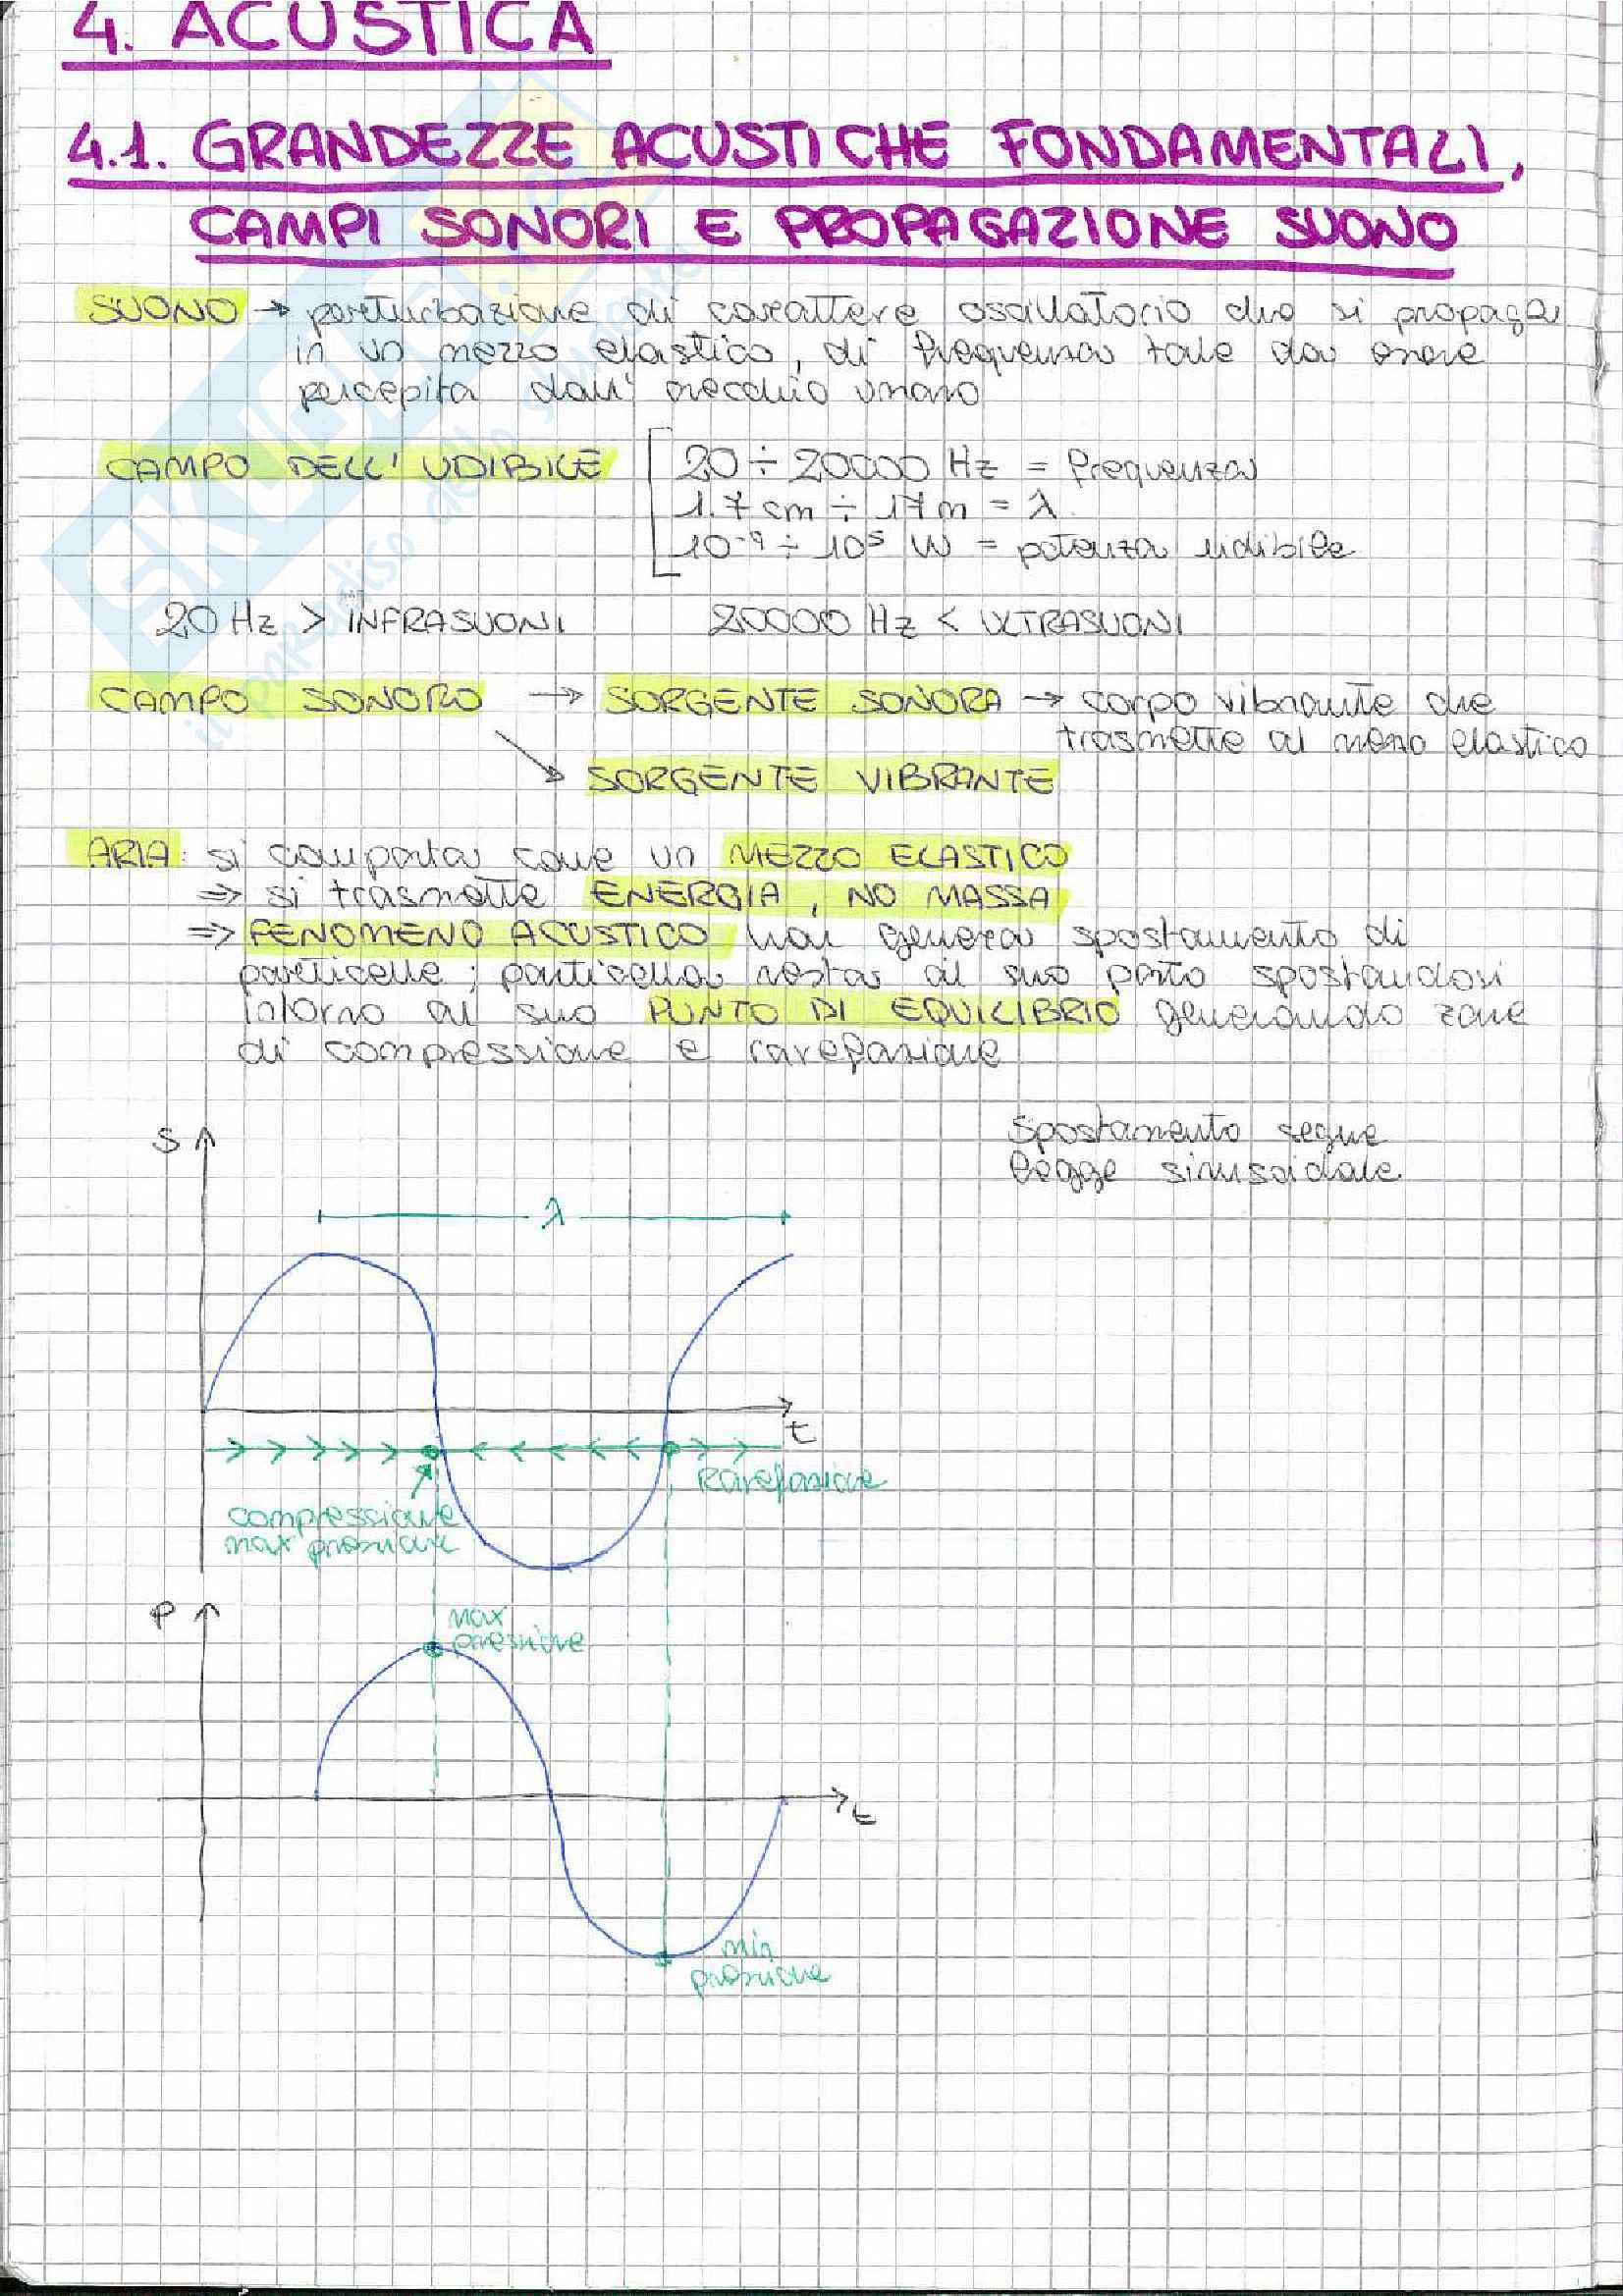 4. ACUSTICA
4.1. GRANDEZZE ACUSTICHE FONDAMENTALI,
CAMPI SONORI E PROPAGAZIONE SUONO
SUONO → perturbazione di carattere oscillatorio che si propaga
in un mezzo elastico, di frequenza tale da essere
percepita dall' orecchio umano
CAMPO DELL' UDIBILE [ 20 ÷ 20000 Hz = frequenza
1.7 cm ÷ 17 m = λ
10⁻⁹ ÷ 10⁵ W = potenza udibile
20 Hz > INFRASUONI 20000 Hz < ULTRASUONI
CAMPO SONORO → SORGENTE SONORA → corpo vibrante che
trasmette al mezzo elastico
↘ SORGENTE VIBRANTE
ARIA: si comporta come un MEZZO ELASTICO
⇒ si trasmette ENERGIA, NO MASSA
⇒ FENOMENO ACUSTICO non genera spostamento di
particelle; particella resta al suo posto spostandosi
intorno al suo PUNTO DI EQUILIBRIO generando zone
di compressione e rarefazione
Spostamento segue
legge sinusoidale
S
λ
t
Rarefazione
compressione
max pressione
P
max
pressione
t
min
pressione
SKUOLA.net
il paradiso dello studente